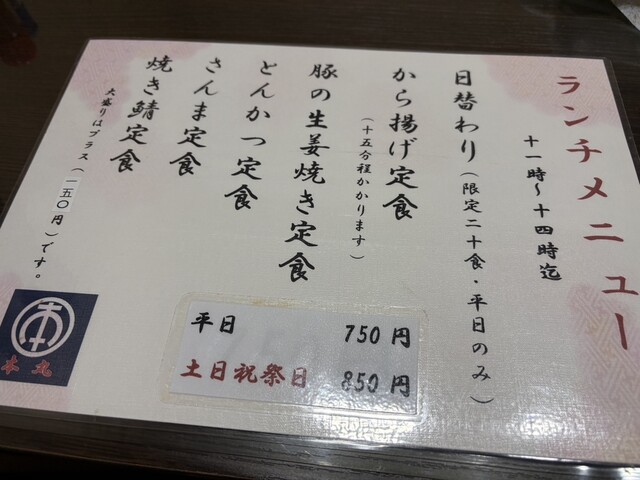 ランチメニュー
十一時～十四時迄
日替わり(限定二十食・平日のみ)
から揚げ定食
(十五分程かかります)
豚の生姜焼き定食
とんかつ定食
さんま定食
焼き鯖定食
大盛りはプラス(一五〇円)です。
平日 750円
土日祝祭日 850円
本丸